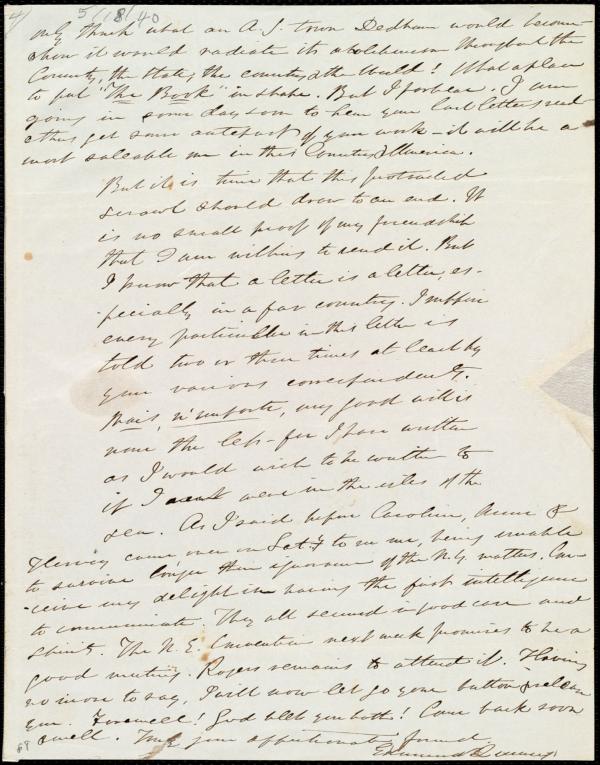 4/ 5/18/40
only think what an A.S. town Dedham would become
& how it would radiate its abolitionism throughout the
County, the State, the country & the World! What a place
to put "The Book" in shape. But I forbear. I am
going in some day soon to hear your last letters read
& thus get some antepast of your work - it will be a
most saleable one in this Country, America.
But it is time that this protracted
scrawl should draw to an end. It
is no small proof of my friendship
that I am willing to send it. But
I know that a letter is a letter, es-
pecially in a far country. I suppose
every particular in this letter is
told two or three times at least by
your various correspondents.
Mais, n'importe, my good will is
none the less - for I have written
as I would wish to be written to
if I were in the isles of the
sea. As I said before Caroline, Anne &
Hervey came over on Sat.y to see me, being unable
to survive longer their ignorance of the N.Y. matters. Con-
ceive my delight in having the first intelligence
to communicate. They all seemed in good case and
spirits. The N.E. Convention next week promises to be a
good meeting. Rogers remains to attend it. Having
no more to say, I will now let go your button & release
you. Farewell! God bless you both! Come back soon
& well. Truly your affectionate friend
Edmund Quincy